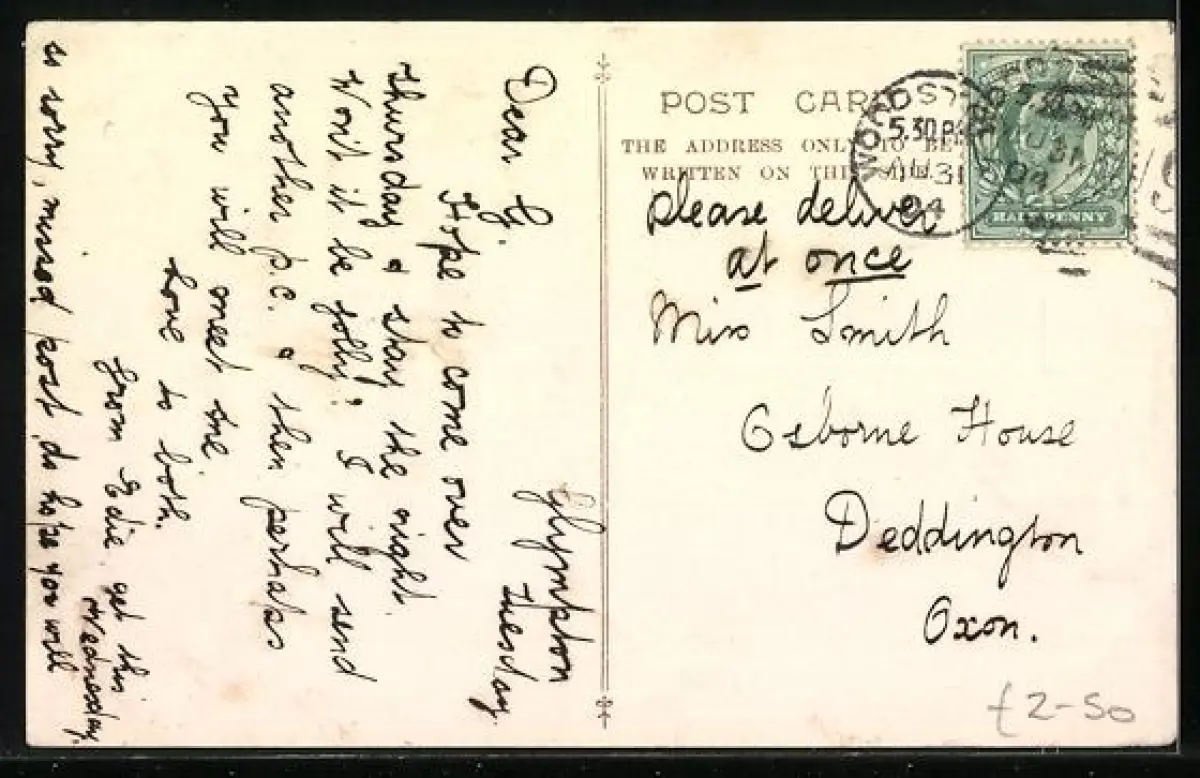 Glympton
Tuesday.
Dear G.
Hope to come over
Thursday & stay the night.
Won't it be jolly? I will send
another p.c. & then perhaps
you will meet me
Love to both.
from Edie.
is sorry, missed post do hope you will
get this
Wednesday.
POST CARD
THE ADDRESS ONLY TO BE
WRITTEN ON THIS SIDE.
please deliver
at once
Miss Smith
Osborne House
Deddington
Oxon.
5.30 P
AU 31
04
HALF PENNY
£2-50